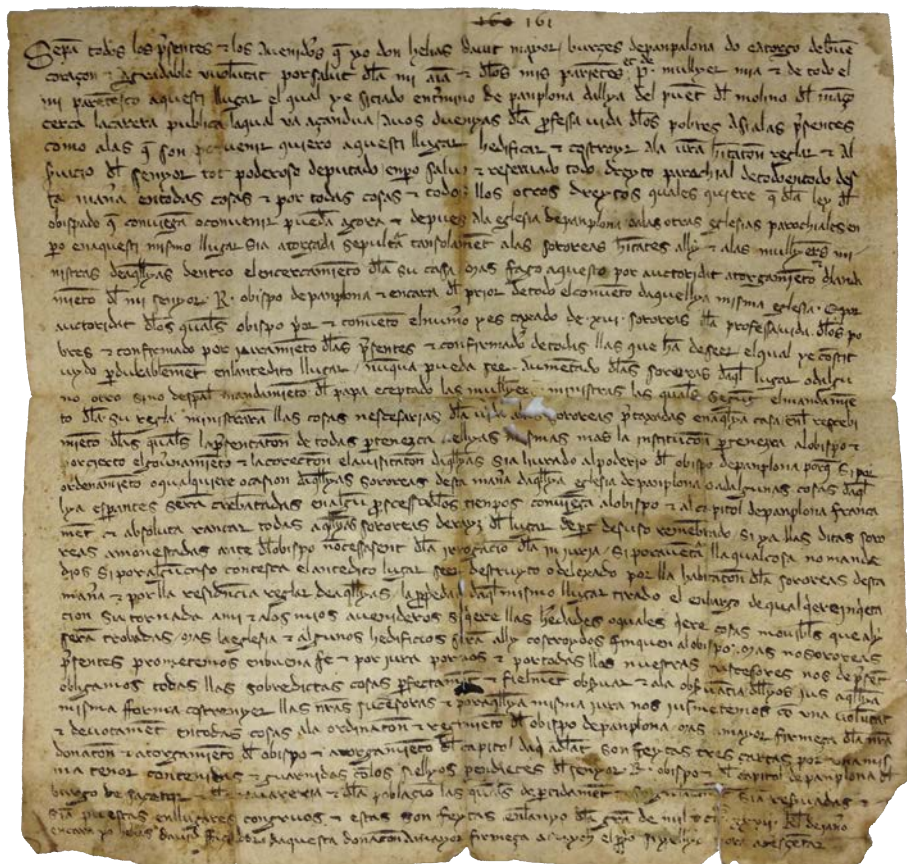 160 161
Sepā todos los p̄sentes ⁊ los avenidos q̄ yo don helias davit mayor / burges de panpalona do ⁊ atorgo de buē
coraçon ⁊ agradable voluntat por salut dla mi aīa ⁊ dlos mis parientes ⁊ de P. mullyer mia ⁊ de todo el
mi parentesco aquesti llugar el qual ye sitiado en t̄mino de panplona dallya del puent dl molino dl
cerca la carera publica laqual va a çandua / a vos duenyas dla p̄fessa vida dlos pobres asi alas p̄sentes
como alas q̄ son por venir quiero aquesti llugar hedificar ⁊ costroyr ala v̄ra h̄itaton reglar ⁊ al
s̄uicio dl senyor tot poderoso deputado enpo salvo ⁊ reservado todo dreyto parochial de todo en todo des
ta man̄a en todas cosas ⁊ por todas cosas ⁊ todos llos otros dreytos quales quiere q̄ dla ley dl
obispado q̄ conviegā o convenir puedā agora ⁊ depues ala eglesia de panplona o alas otras eglesias parochiales en
po en aquesti mismo llugar sia atorgada sepult̄a tan solamēt alas sorores h̄itātes ally ⁊ alas mullyeres mi
nistras deaqllyas dentro el encercamiēto dla su casa / mas fago aquesto por auctoridat atorgamiēto ⁊
miēto dl mi senyor R. obispo de panplona ⁊ encara dl prior ⁊ de todo el convēto daquellya misma eglesia. ⁊ por
auctoridat dlos quals obispo p̄or ⁊ convēto el num̄o yes taxado de xvi. sorores dla professa vida dlos po
bres ⁊ confirmado por juramiēto dlas p̄sentes ⁊ confirmado de todas llas que hā de seer el qual ye costit
uydo p̄durablemēt en lantedito llugar / nūqua pueda seer aumētado dlas sorores daql lugar o dalgu
no otro sino despal mandamiēto dl papa eceptado las mullyeres ministras las quals segūt el mandamiē
to dla su regla ministrarā llas cosas nescesarias dla vida alas sorores p̄taxadas en aqllya casa enl recebi
miēto dlas quals la p̄sentaton de todas p̄tenezca a ellyas mismas mas la instituciōn p̄tenezca al obispo ⁊
por cierto el gov̄namiēto ⁊ la corectōn ⁊ la visitatōn daqllyas sia livrado al poderio dl obispo de panplona porq̄ si por
ordenamiēto o qualquiere ocasion daqllyas sorores desta man̄a daqllya eglesia de panplona o adalgunas cosas daql
lya esperantes serā crebatadas en algū p̄scesso dlos tienpos conviega al obispo ⁊ al capitol de panplona franca
mēt ⁊ absoluta rancar todas aqllyas sorores de rayz dl lugar de p̄t de suso remēbrado si ya llas ditas soro
reas amonestadas ante dl obispo no cesasent dla irrogacio dla injuria / si por aventa lla qual cosa no mande
dios si por algū caso contesca el antedito lugar seer destruyto o delexado por lla habitatōn dla sororeas desta
man̄a ⁊ por lla residēcia reglar deaqllyas / la p̄pedat daql mismo llugar tirado el enbargo de qual q̄ere inq̄eta
cion sia tornada a mi ⁊ a los mios avenideros si q̄ere llas h̄edades o quales q̄ere cosas movibles que ally
serā trobadas / mas la eglesia ⁊ algunos hedificios si serā ally costroydos finquen al obispo. mas nos sorores
p̄sentes prometemos en buena fe ⁊ por jura por nos ⁊ por todas llas nuestras sucesores nos de p̄set
obligamos todas llas sobredictas cosas p̄fectamēt ⁊ fielmēt obs̄var ⁊ ala obs̄vācia dllyos jus aqllya
misma fforma costronyer llas n̄ras sucesoras ⁊ por aqllya misma jura nos jusmetemos cō una volūtat
⁊ devotamēt en todas cosas ala ordinatōn ⁊ regimiēto dl obispo de panplona mas a mayor firmeça dla n̄ra
donatōn ⁊ atorgamiēto dl obispo ⁊ atorgamiēto dl capitol daq̄ adelāt son feytas tres cartas por una mis
ma tenor contenidas ⁊ guarnidas cōlos siellyos pendiētes dl senyor R. obispo ⁊ dl capitol de panplona dl
burgo de ⁊ dl ⁊ dla poblacio las quals departidamēt siā reservadas ⁊
siā puestas en llugares congruos ⁊ estas son feytas en lanyo dla gr̄a de mil ⁊ dl
encara yo helias davit daquesta donatōn a mayor firmeça el p̄o siellyo